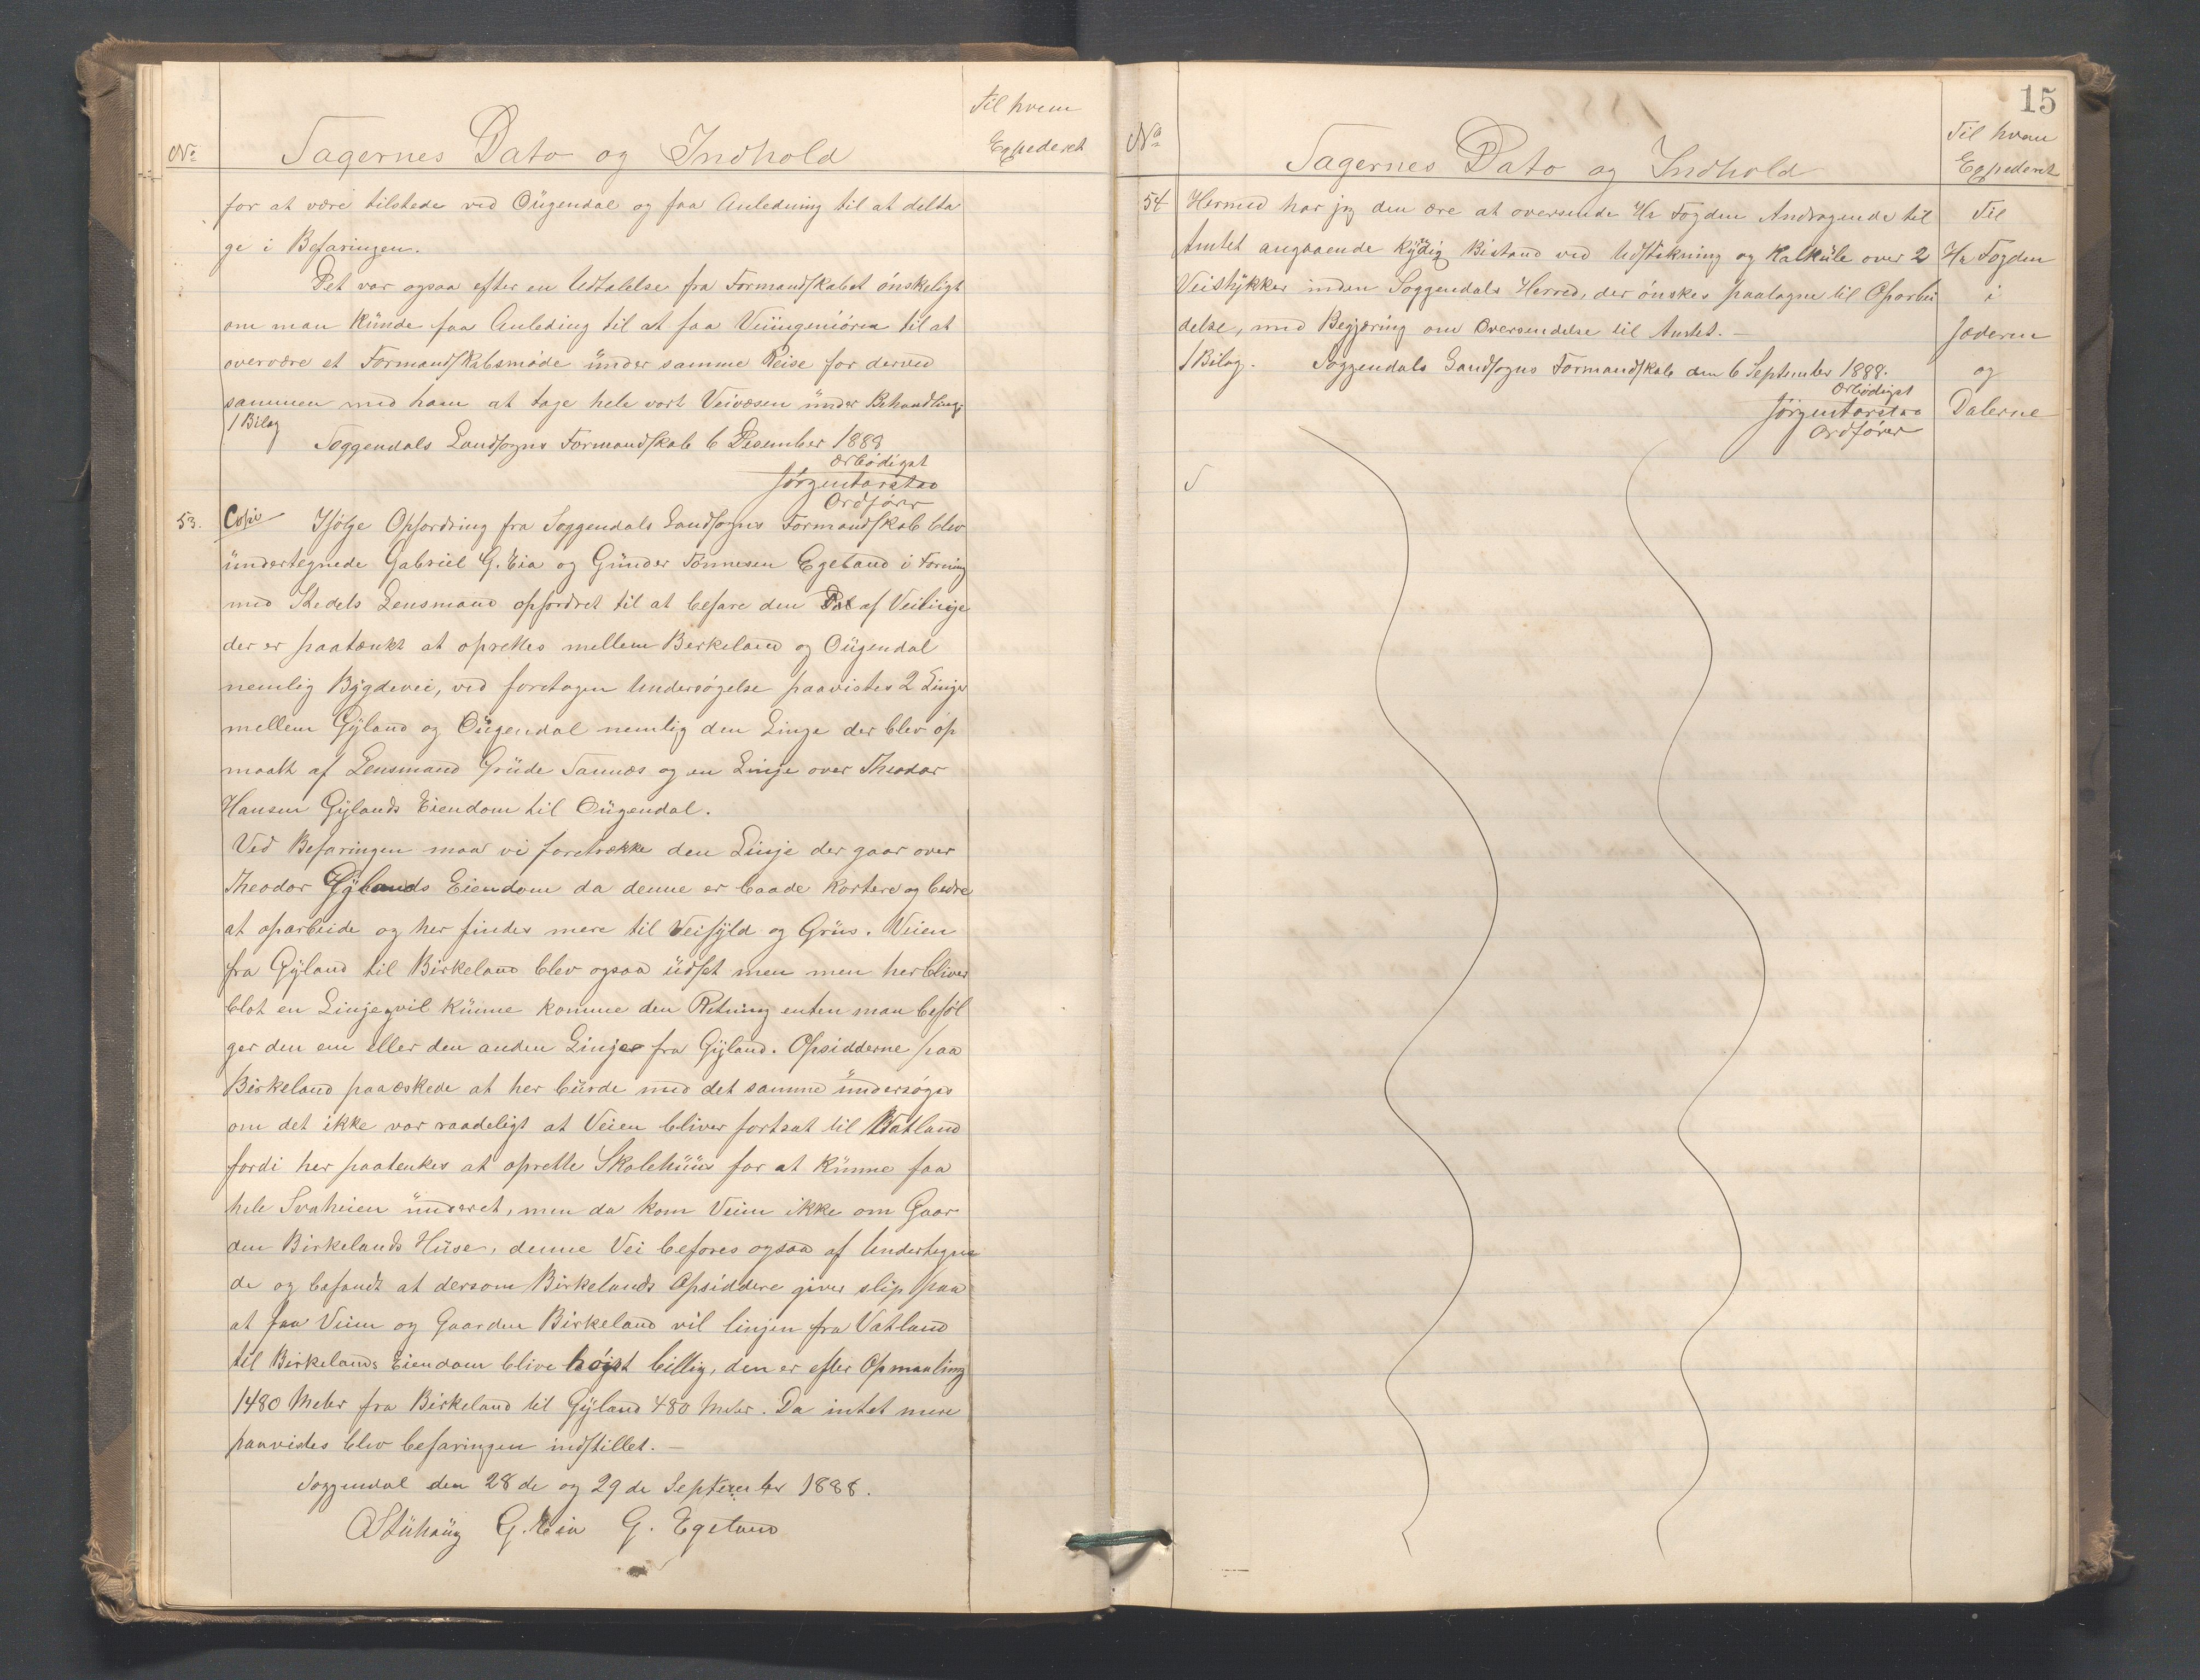 Til hvem
No Sagernes Dato og Indhold Expederet
for at være tilstede ved Ougendal og faa Anledning til at delta
ge i Befaringen.
Det var ogsaa efter en Udtalelse fra Formandskabet ønskeligt
om man kunde faa Anleding til at faa Veiingeniøren til at
overvære et Formandskabsmøde under samme Reise for derved
sammen med ham at tage hele vort Veivæsen under Behandling.
1 Bilag
Soggendals Landsogns Formandskab 6 Desember 1888
Ærbødigst
Jørgen Tarstao
Ordfører
53. Copie Ifølge Opfordring fra Soggendals Landsogns Formandskab blev
undertegnede Gabriel G. Eia og Gunder Tønnesen Egeland i Foening
med Stedets Lensmand opfordret til at befare den Del af Veilinje
der er paatænkt at oprettes mellem Berkeland og Ougendal
nemlig Bygdevei, ved foretagen Undersøgelse paavistes 2 Linjer
mellem Gyland og Ougendal nemlig den Linje der blev op
maalt af Lensmand Grude Sannæs og en Linje over Theodor
Hansen Gylands Eiendom til Ougendal.
Ved Befaringen maa vi foretrække den Linje der gaar over
Theodor Gylands Eiendom da denne er baade kortere og bedre
at oparbeide og her findes mere til Veifyld og Grus. Veien
fra Gyland til Birkeland blev ogsaa udset men men her bliver
blot en Linje vil kunne komme den Retning enten man beføl
ger den ene eller den anden Linje fra Gyland. Opsidderne paa
Birkeland paaæskede at her burde med det samme undersøges
om det ikke var raadeligt at Veien bliver fortsat til Vatland
fordi her paatenkes at oprette Skolehuus for at kunne faa
hele Svaheien underet, men da kom Veien ikke om Gaar
den Birkelands Huse, denne Vei befores ogsaa af Undertegne
de og befandt at dersom Birkelands Opsiddere giver slip paa
at faa Veien og Gaarden Birkeland vil linjen fra Vatland
til Birkelands Eiendom blive høist billig, den er efter Opmaaling
1480 Meter fra Birkeland til Gyland 480 Meter. Da intet mere
paavistes blev befaringen indstillet. —
Soggendal den 28de og 29de September 1888.
O Stuhaug G. Eia G. Egeland
15
Til hvem
No Sagernes Dato og Indhold Expederet
54 Hermed har jeg den ære at oversende Hr Fogden Andragende til Til
Amtet angaaende kyndig Bistand ved Udstikning og Kalkule over 2 Hr Fogden
Veistykker inden Soggendals Herred, der ønskes paatagne til Oparbei i
delse, med Begjæring om Oversendelse til Amtet. — Jæderen
1 Bilag. Soggendals Landsogns Formandskab den 6 September 1888. og
Ærbødigst
Jørgen Tarstao Dalerne
Ordfører